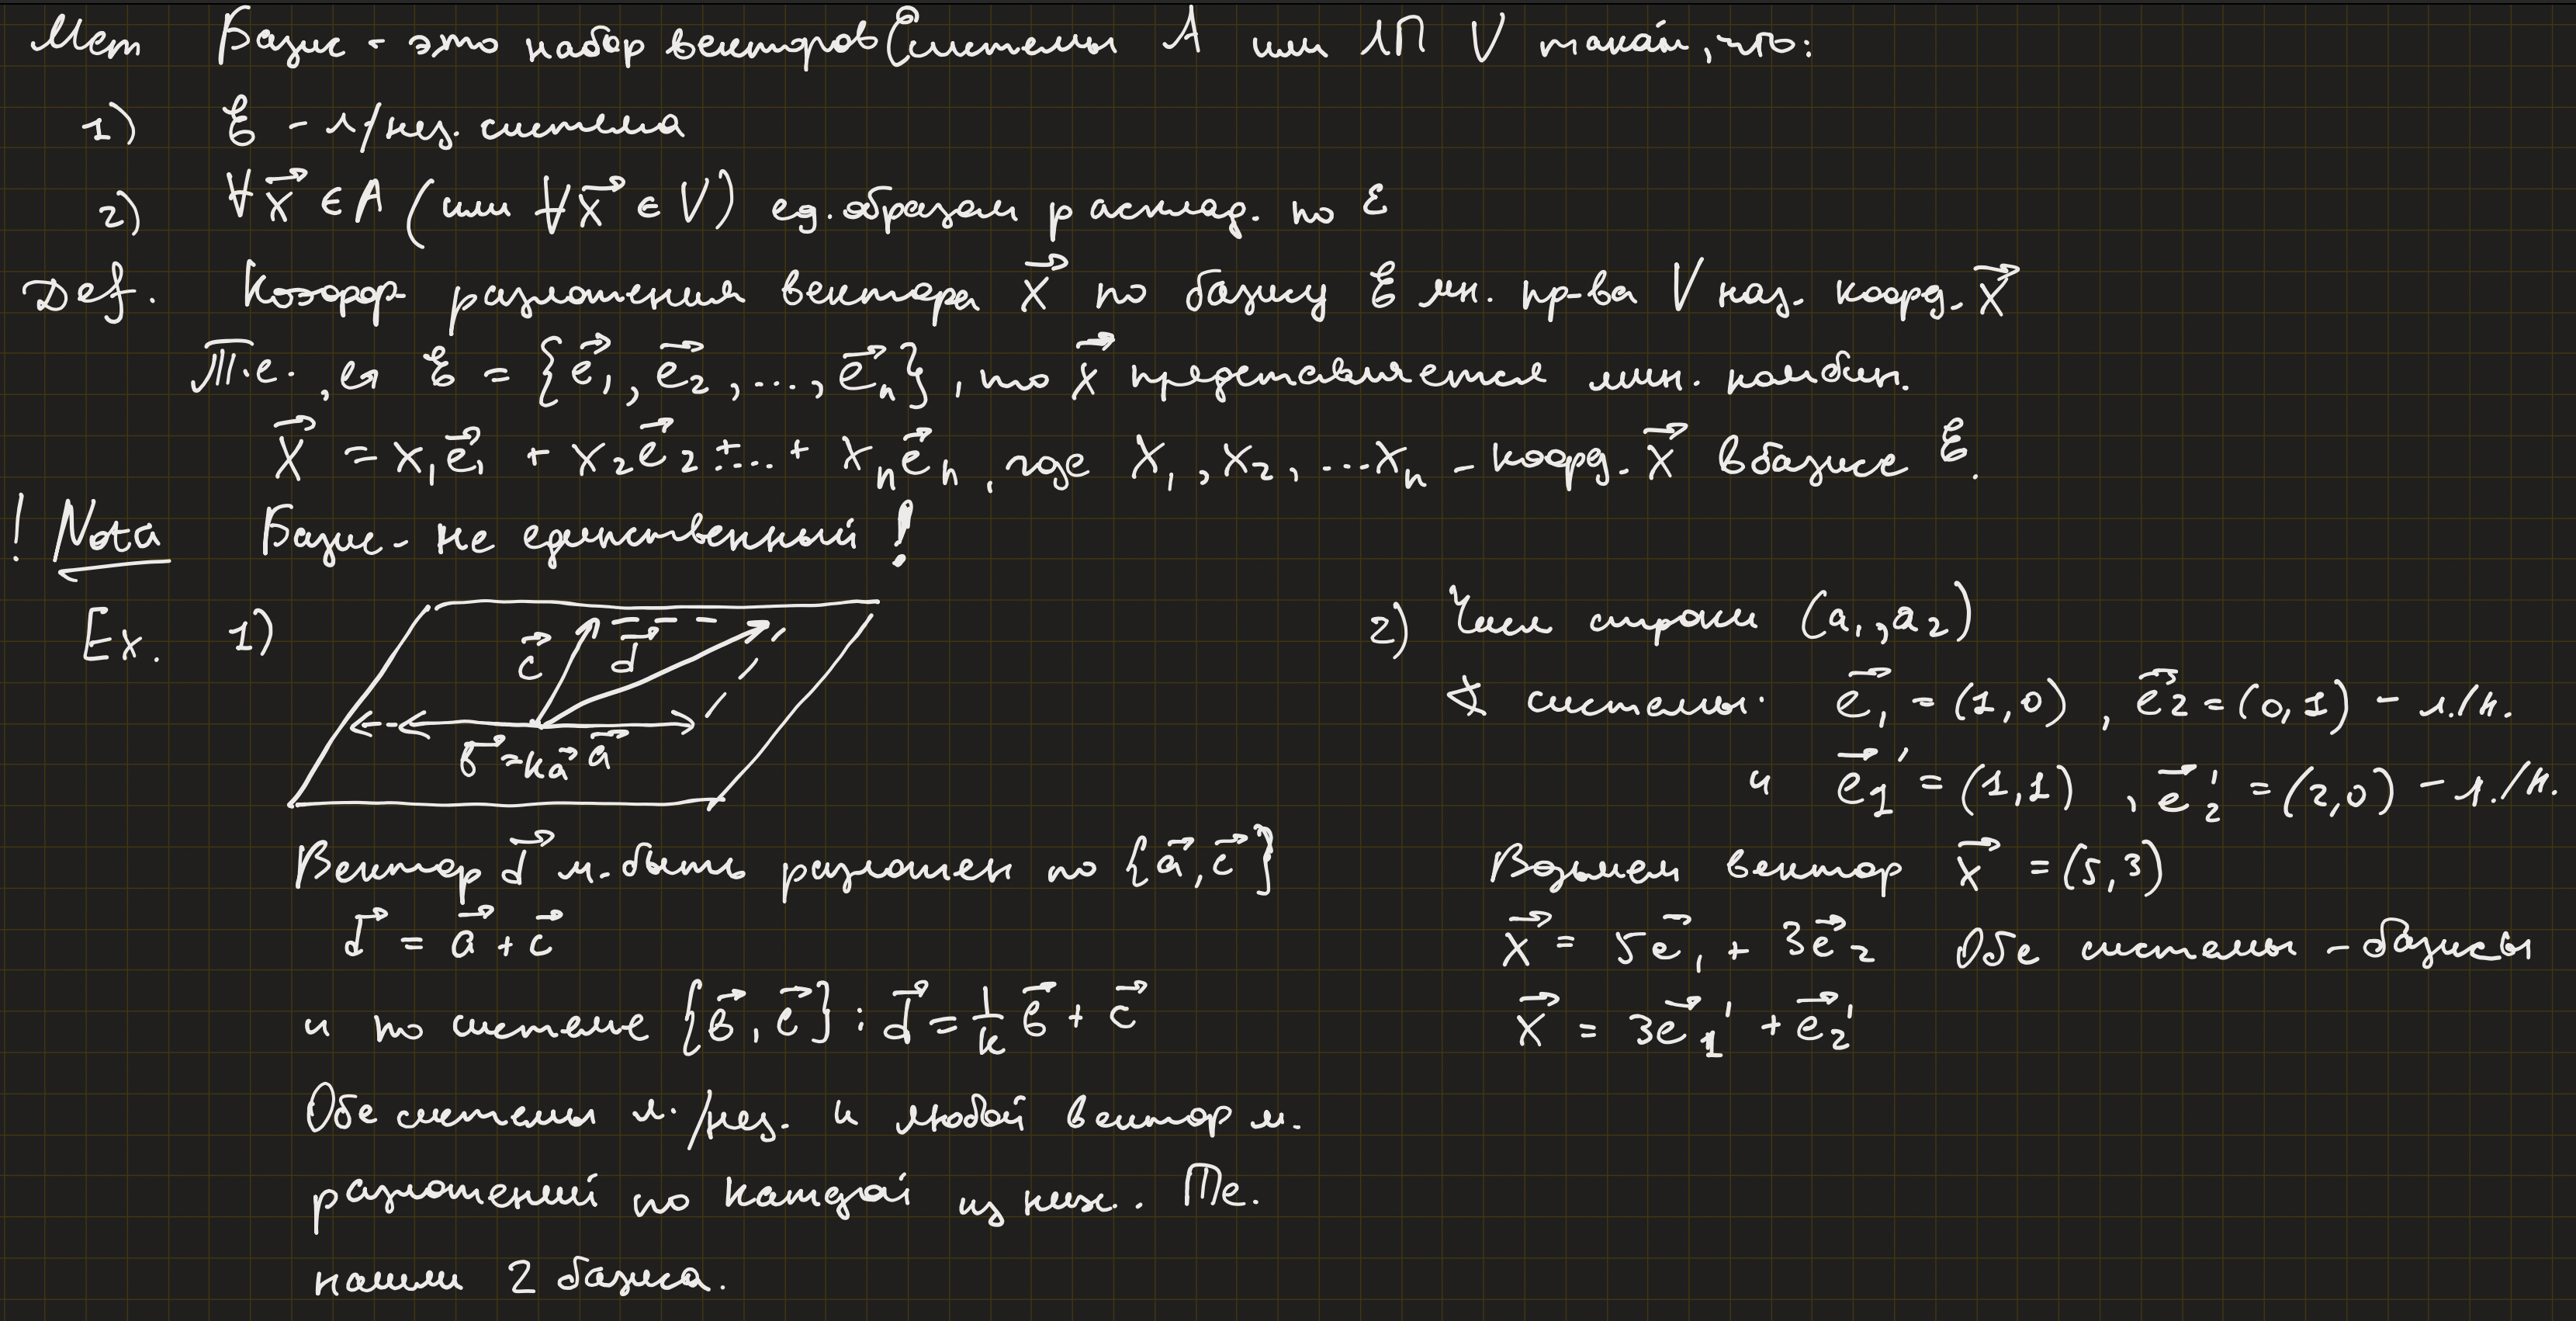 Мет Базис - это набор векторов системы A или ЛП V такой, что:
1) ℰ - л/нез. система
2) ∀x⃗ ∈ A (или ∀x⃗ ∈ V) ед. образом расклад. по ℰ
Def. разложения вектора x⃗ по базису ℰ лин. пр-ва V наз. коорд. x⃗
Т.е., если ℰ = {e⃗₁, e⃗₂, ..., e⃗ₙ}, то x⃗ представляется лин. комбин.
x⃗ = x₁e⃗₁ + x₂e⃗₂ + ... + xₙe⃗ₙ, где x₁, x₂, ... xₙ - коорд. x⃗ в базисе ℰ.
! Nota Базис - не единственный!
Ex. 1)
c⃗ d⃗
в⃗ = ka⃗ a⃗
Вектор d⃗ м. быть разложен по {a⃗, c⃗}
d⃗ = a⃗ + c⃗
и по системе {в⃗, c⃗} : d⃗ = 1/k в⃗ + c⃗
Обе системы л./нез. и любой вектор м.
разложений по каждой из них. Те.
нашли 2 базиса.
2) Числ строки (a₁, a₂)
системы: e⃗₁ = (1,0), e⃗₂ = (0,1) - л./н.
и e⃗₁' = (1,1), e⃗₂' = (2,0) - л./н.
Возьмем вектор x⃗ = (5,3)
x⃗ = 5e⃗₁ + 3e⃗₂ Обе системы - базисы
x⃗ = 3e⃗₁' + e⃗₂'